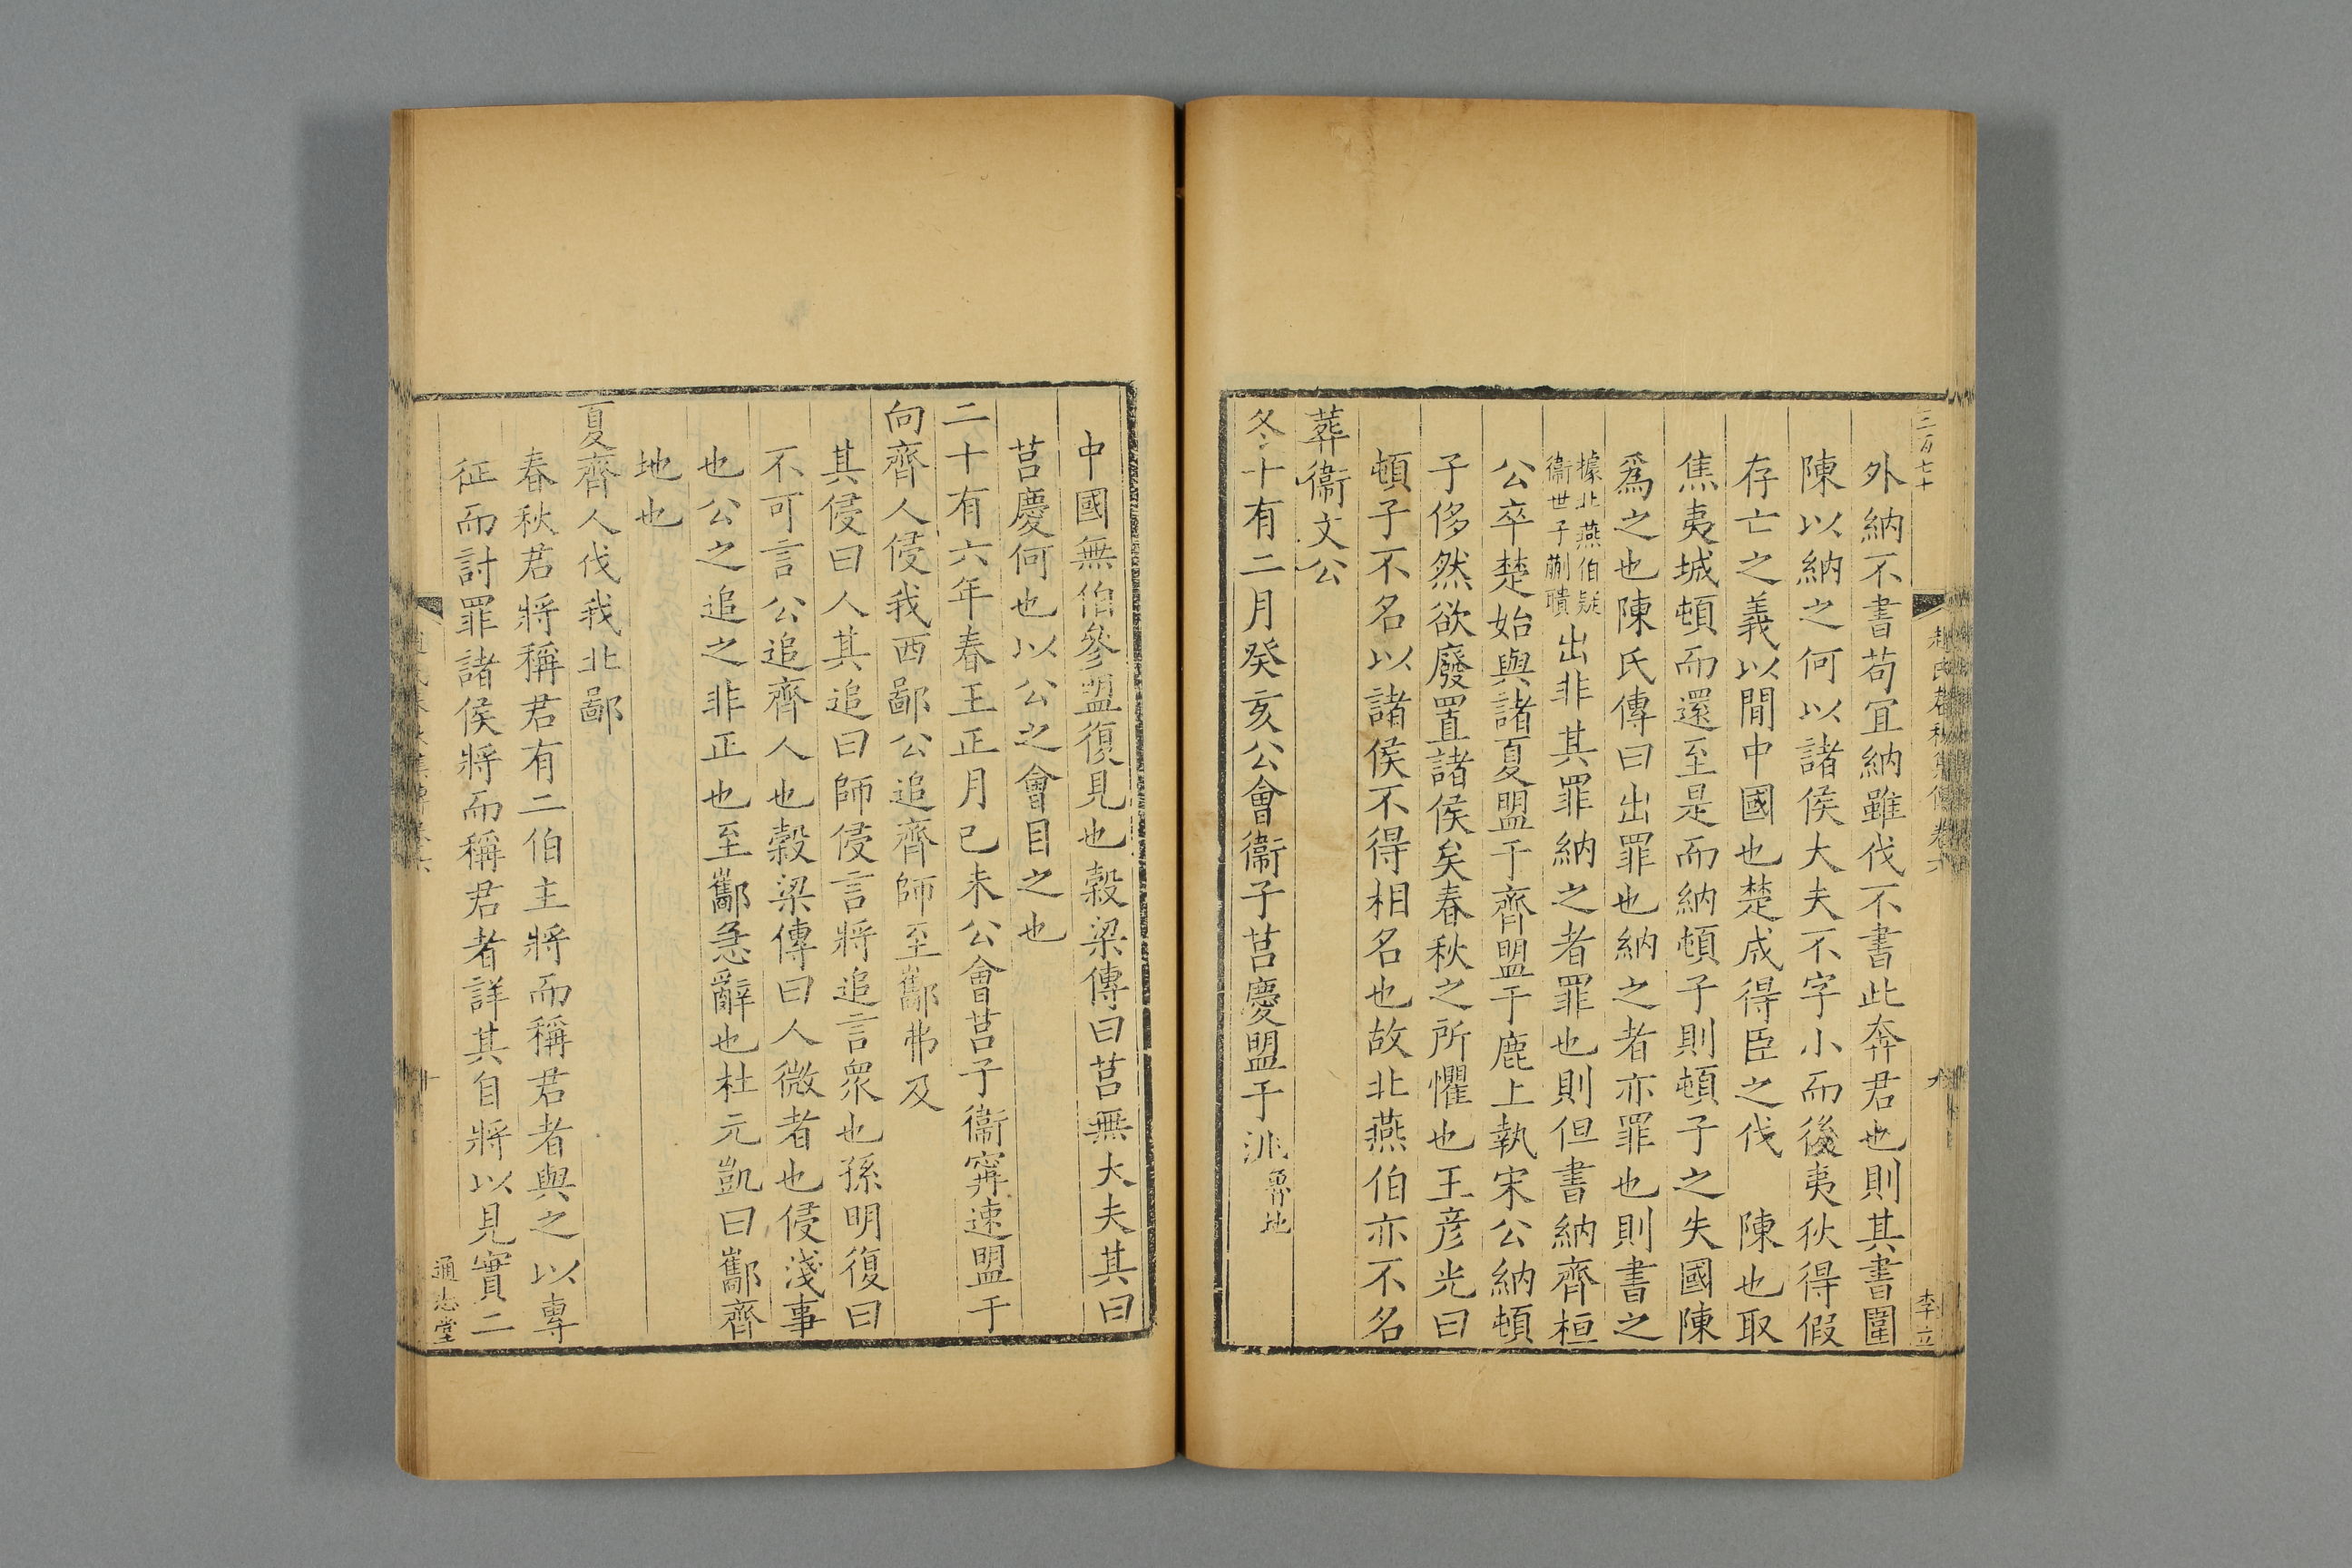 三百七十
李立
外納不書苟宜納雖伐不書此奔君也則其書圍
陳以納之何以諸侯大夫不字小而後夷狄得假
存亡之義以間中國也楚成得臣之伐　陳也取
焦夷城頓而還至是而納頓子則頓子之失國陳
爲之也陳氏傳曰出罪也納之者亦罪也則書之
據北燕伯疑
衞世子蒯聵
出非其罪納之者罪也則但書納齊桓
公卒楚始與諸夏盟于齊盟于鹿上執宋公納頓
子侈然欲廢置諸侯矣春秋之所懼也王彥光曰
頓子不名以諸侯不得相名也故北燕伯亦不名
葬衞文公
冬十有二月癸亥公會衞子莒慶盟于洮魯地
中國無伯參盟復見也穀梁傳曰莒無大夫其曰
莒慶何也以公之會目之也
二十有六年春王正月己未公會莒子衞甯速盟于
向齊人侵我西鄙公追齊師至酅弗及
其侵曰人其追曰師侵言將追言眾也孫明復曰
不可言公追齊人也穀梁傳曰人微者也侵淺事
也公之追之非正也至酅急辭也杜元凱曰酅齊
地也
夏齊人伐我北鄙
春秋君將稱君有二伯主將而稱君者與之以專
征而討罪諸侯將而稱君者詳其自將以見實二
通志堂